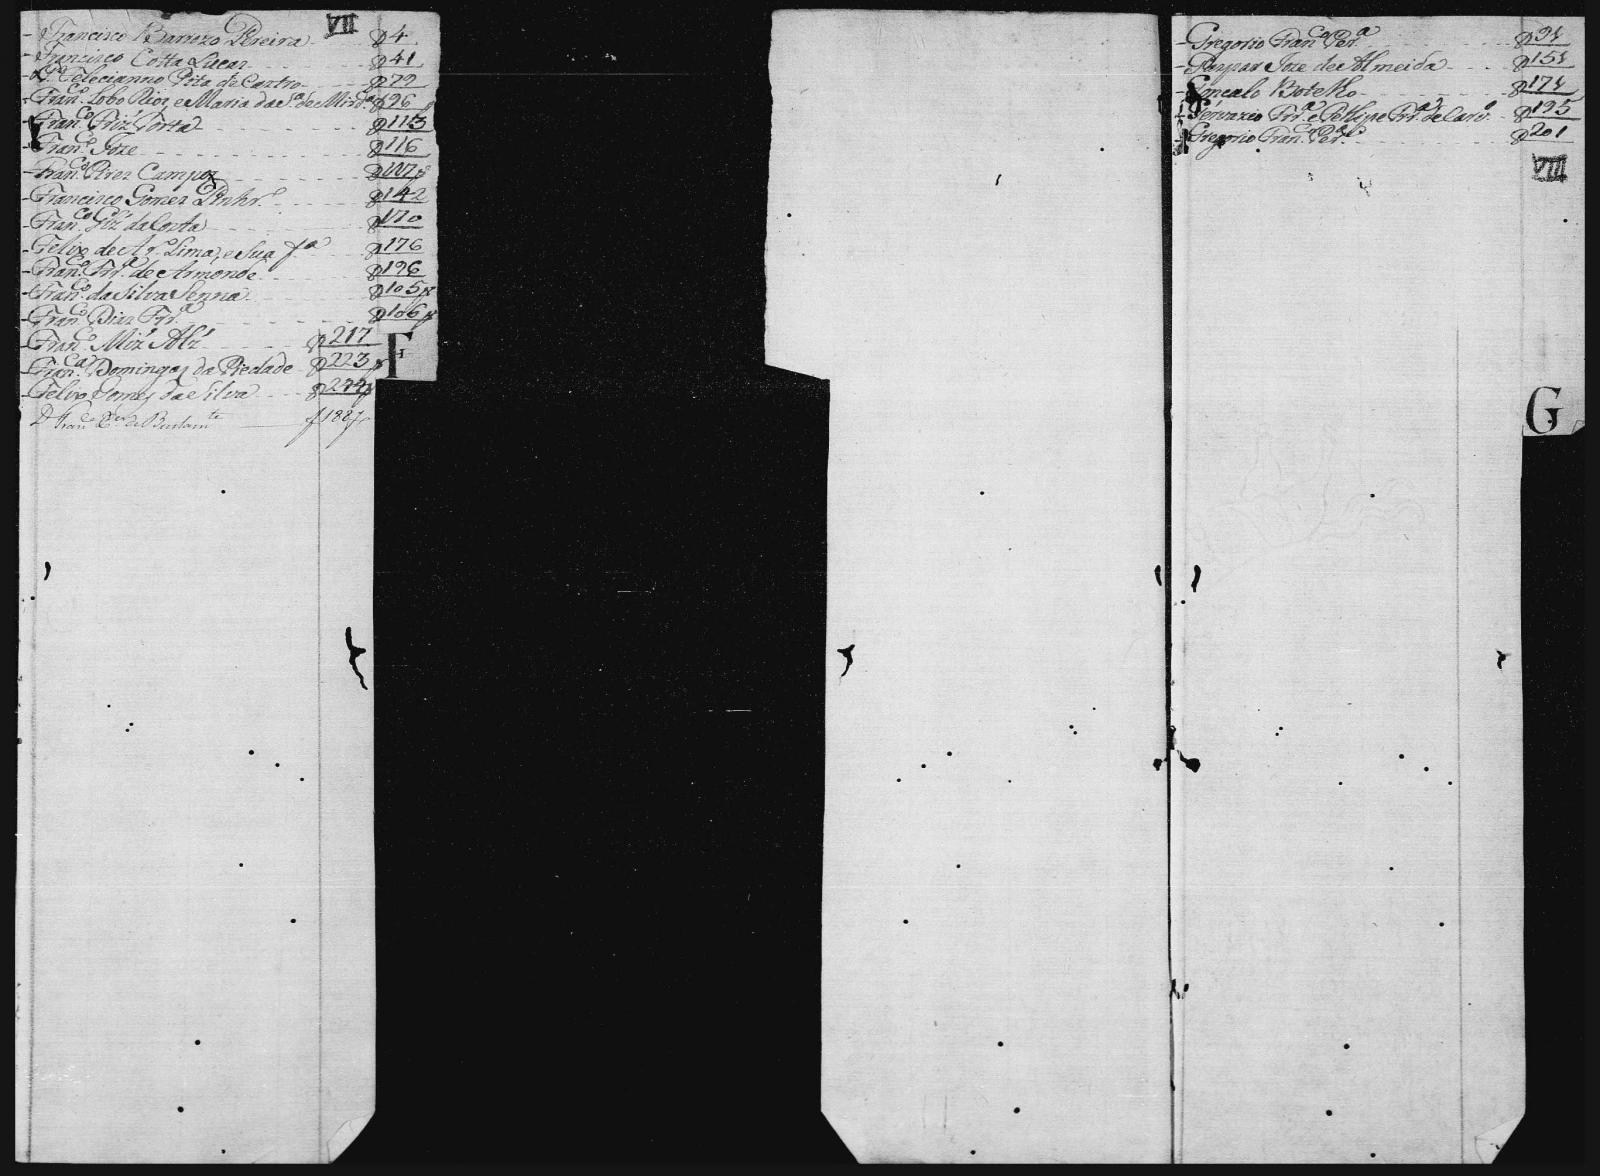 VII
- Francisco Barrozo Pereira - f 4
- Francisco Cotta Lucas f 41
P.e Felecianno Pita de Castro f 79
- Fran.co Lobo Rioz e Maria da S.a de Mird.a f 96
- Fran.co Friz' Porta f 113
- Fran.co Joze f 116
- Fran.co Pirez Campoz f 117
- Francisco Gomez Pinhr.o f 142
- Fran.co Glz' da Costa f 170
- Felix de Ar.o Lima, e Sua f.a f 176
- Fran.co Frr.a de Armonde f 196
- Fran.co da Silva Senna f 105
- Fran.co Diaz Frr.a f 106
- Fran.co Miz' Alz' f 217
- Fran.ca Domingas da Piedade f 223
- Felix Gomes da Silva f 244
D Fran.ca f 188
F
- Gregorio Fran.co Per.a f 94
- Gaspar Joze de Almeida f 154
- Goncalo Botelho f 174
- Gervazio Frr.a e Fellipe Frr.a de Carv.o f 195
- Gregorio Fran.co Per.a f 201
VIII
G